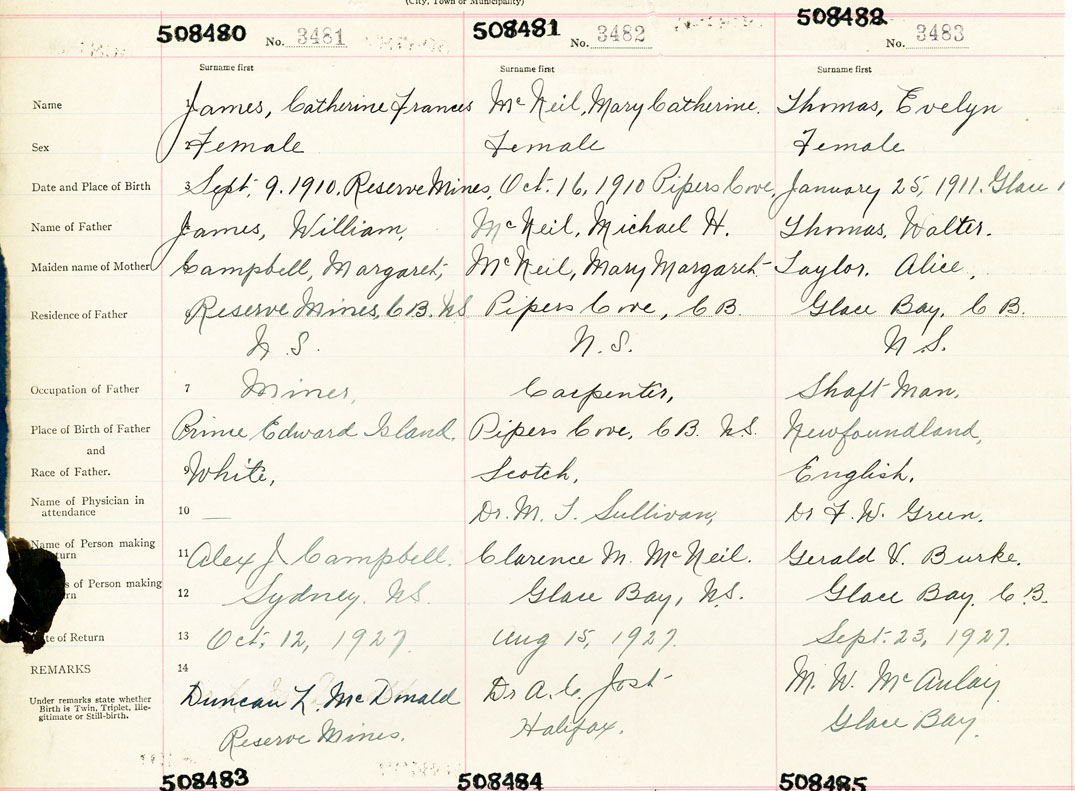 (City, Town or Municipality)
508480 No. 3481 508481 No. 3482 508482 No. 3483
Surname first Surname first Surname first
Name 1 James, Catherine Frances McNeil, Mary Catherine. Thomas, Evelyn
Sex 2 Female Female Female
Date and Place of Birth 3 Sept. 9. 1910. Reserve Mines, Oct. 16, 1910 Pipers Cove, January 25, 1911. Glace
Name of Father James, William, McNeil, Michael H. Thomas, Walter.
Maiden name of Mother Campbell, Margaret, McNeil, Mary Margaret Taylor. Alice,
Residence of Father Reserve Mines, C B. NS Pipers Cove, C B Glace Bay, C B.
N. S. N. S. N. S.
Occupation of Father 7 Miner, Carpenter, Shaft Man.
Place of Birth of Father Prince Edward Island. Pipers Cove, C B. N S. Newfoundland,
and
Race of Father. 9 White, Scotch, English,
Name of Physician in
attendance 10 — Dr. M. T. Sullivan, Dr F. W. Green.
Name of Person making
11 Alex J. Campbell. Clarence M. McNeil. Gerald V. Burke.
of Person making
12 Sydney. N S. Glace Bay, N S. Glace Bay. C B.
of Return 13 Oct. 12, 1927. Aug 15, 1927. Sept. 23, 1927.
REMARKS 14
Under remarks state whether
Birth is Twin, Triplet, Ille-
gitimate or Still-birth.
Duncan L. McDonald Dr A. C. Jost M. W. McAulay
Reserve Mines. Halifax. Glace Bay
508483 508484 508485